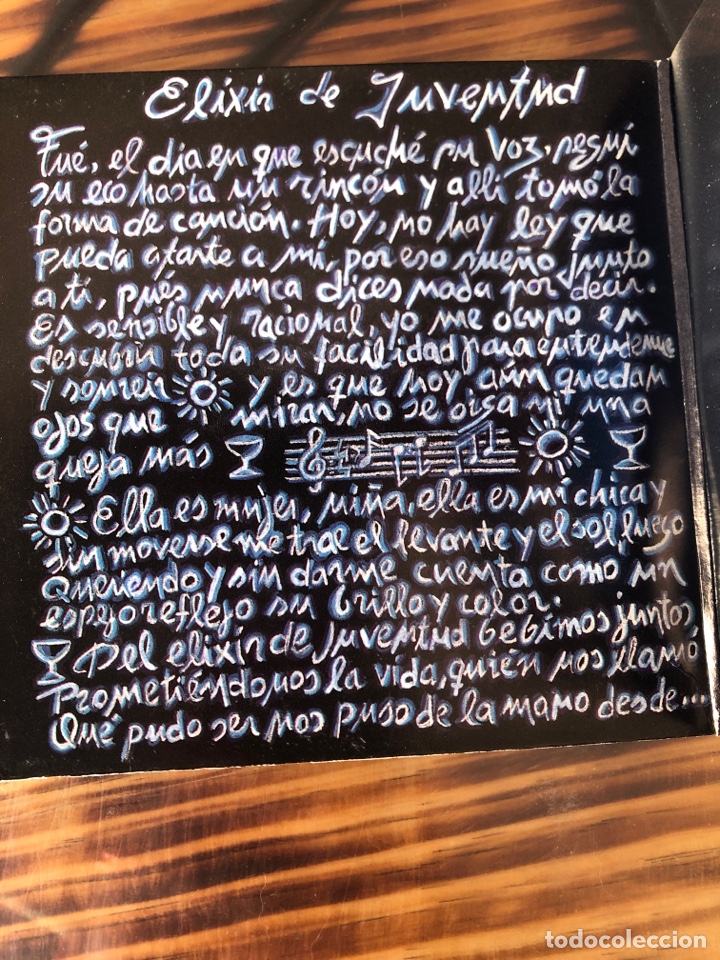 Elixir de Juventud
Fué, el día en que escuché su voz, seguí
su eco hasta un rincón y allí tomó la
forma de canción. Hoy, no hay ley que
pueda atarte a mí, por eso sueño junto
a ti, pués nunca dices nada por decir.
Es sensible y racional, yo me ocupo en
descubrir toda su facilidad para entenderme
y sonreir y es que hoy aún quedan
ojos que miran, no se oiga ni una
queja más
Ella es mujer, niña, ella es mi chica y
sin moverse me trae el levante y el sol, luego
Queriendo y sin darme cuenta como un
espejo reflejo su brillo y color.
Del elixir de juventud bebimos juntos,
Prometiéndonos la vida, quién nos llamó
Qué pudo ser nos puso de la mano desde...
todocoleccion